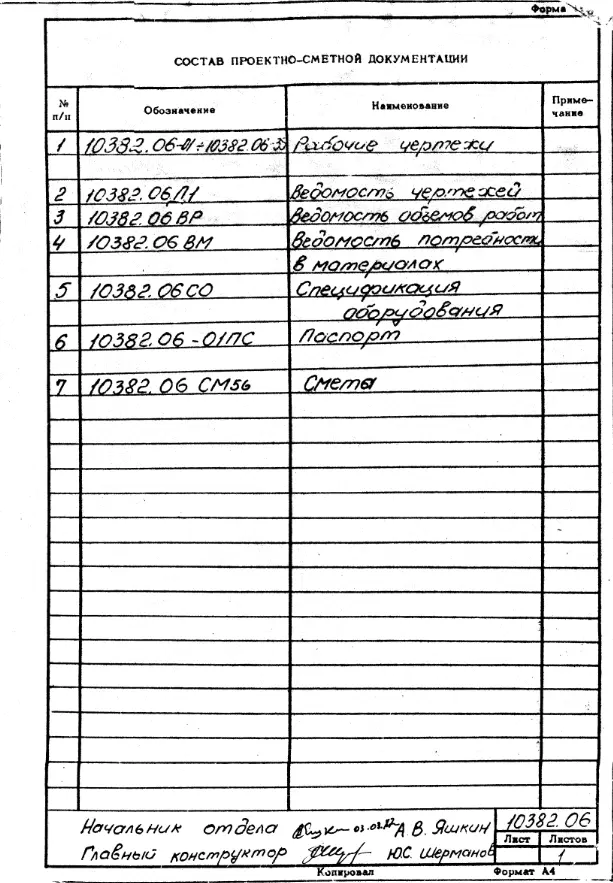 Форма
СОСТАВ ПРОЕКТНО-СМЕТНОЙ ДОКУМЕНТАЦИИ
№ п/п Обозначение Наименование Приме-
чание
1 10382.06-01÷10382.06-33 Рабочие чертежи
2 10382.06Л1 Ведомость чертежей
3 10382.06ВР Ведомость объемов работ
4 10382.06ВМ Ведомость потребности
в материалах
5 10382.06СО Спецификация
оборудования
6 10382.06-01ПС Паспорт
7 10382.06 СМ56 Сметы
Начальник отдела А.В. Яшкин 10382.06
Лист Листов
Главный конструктор Ю.С. Шерманов 1
Копировал Формат А4